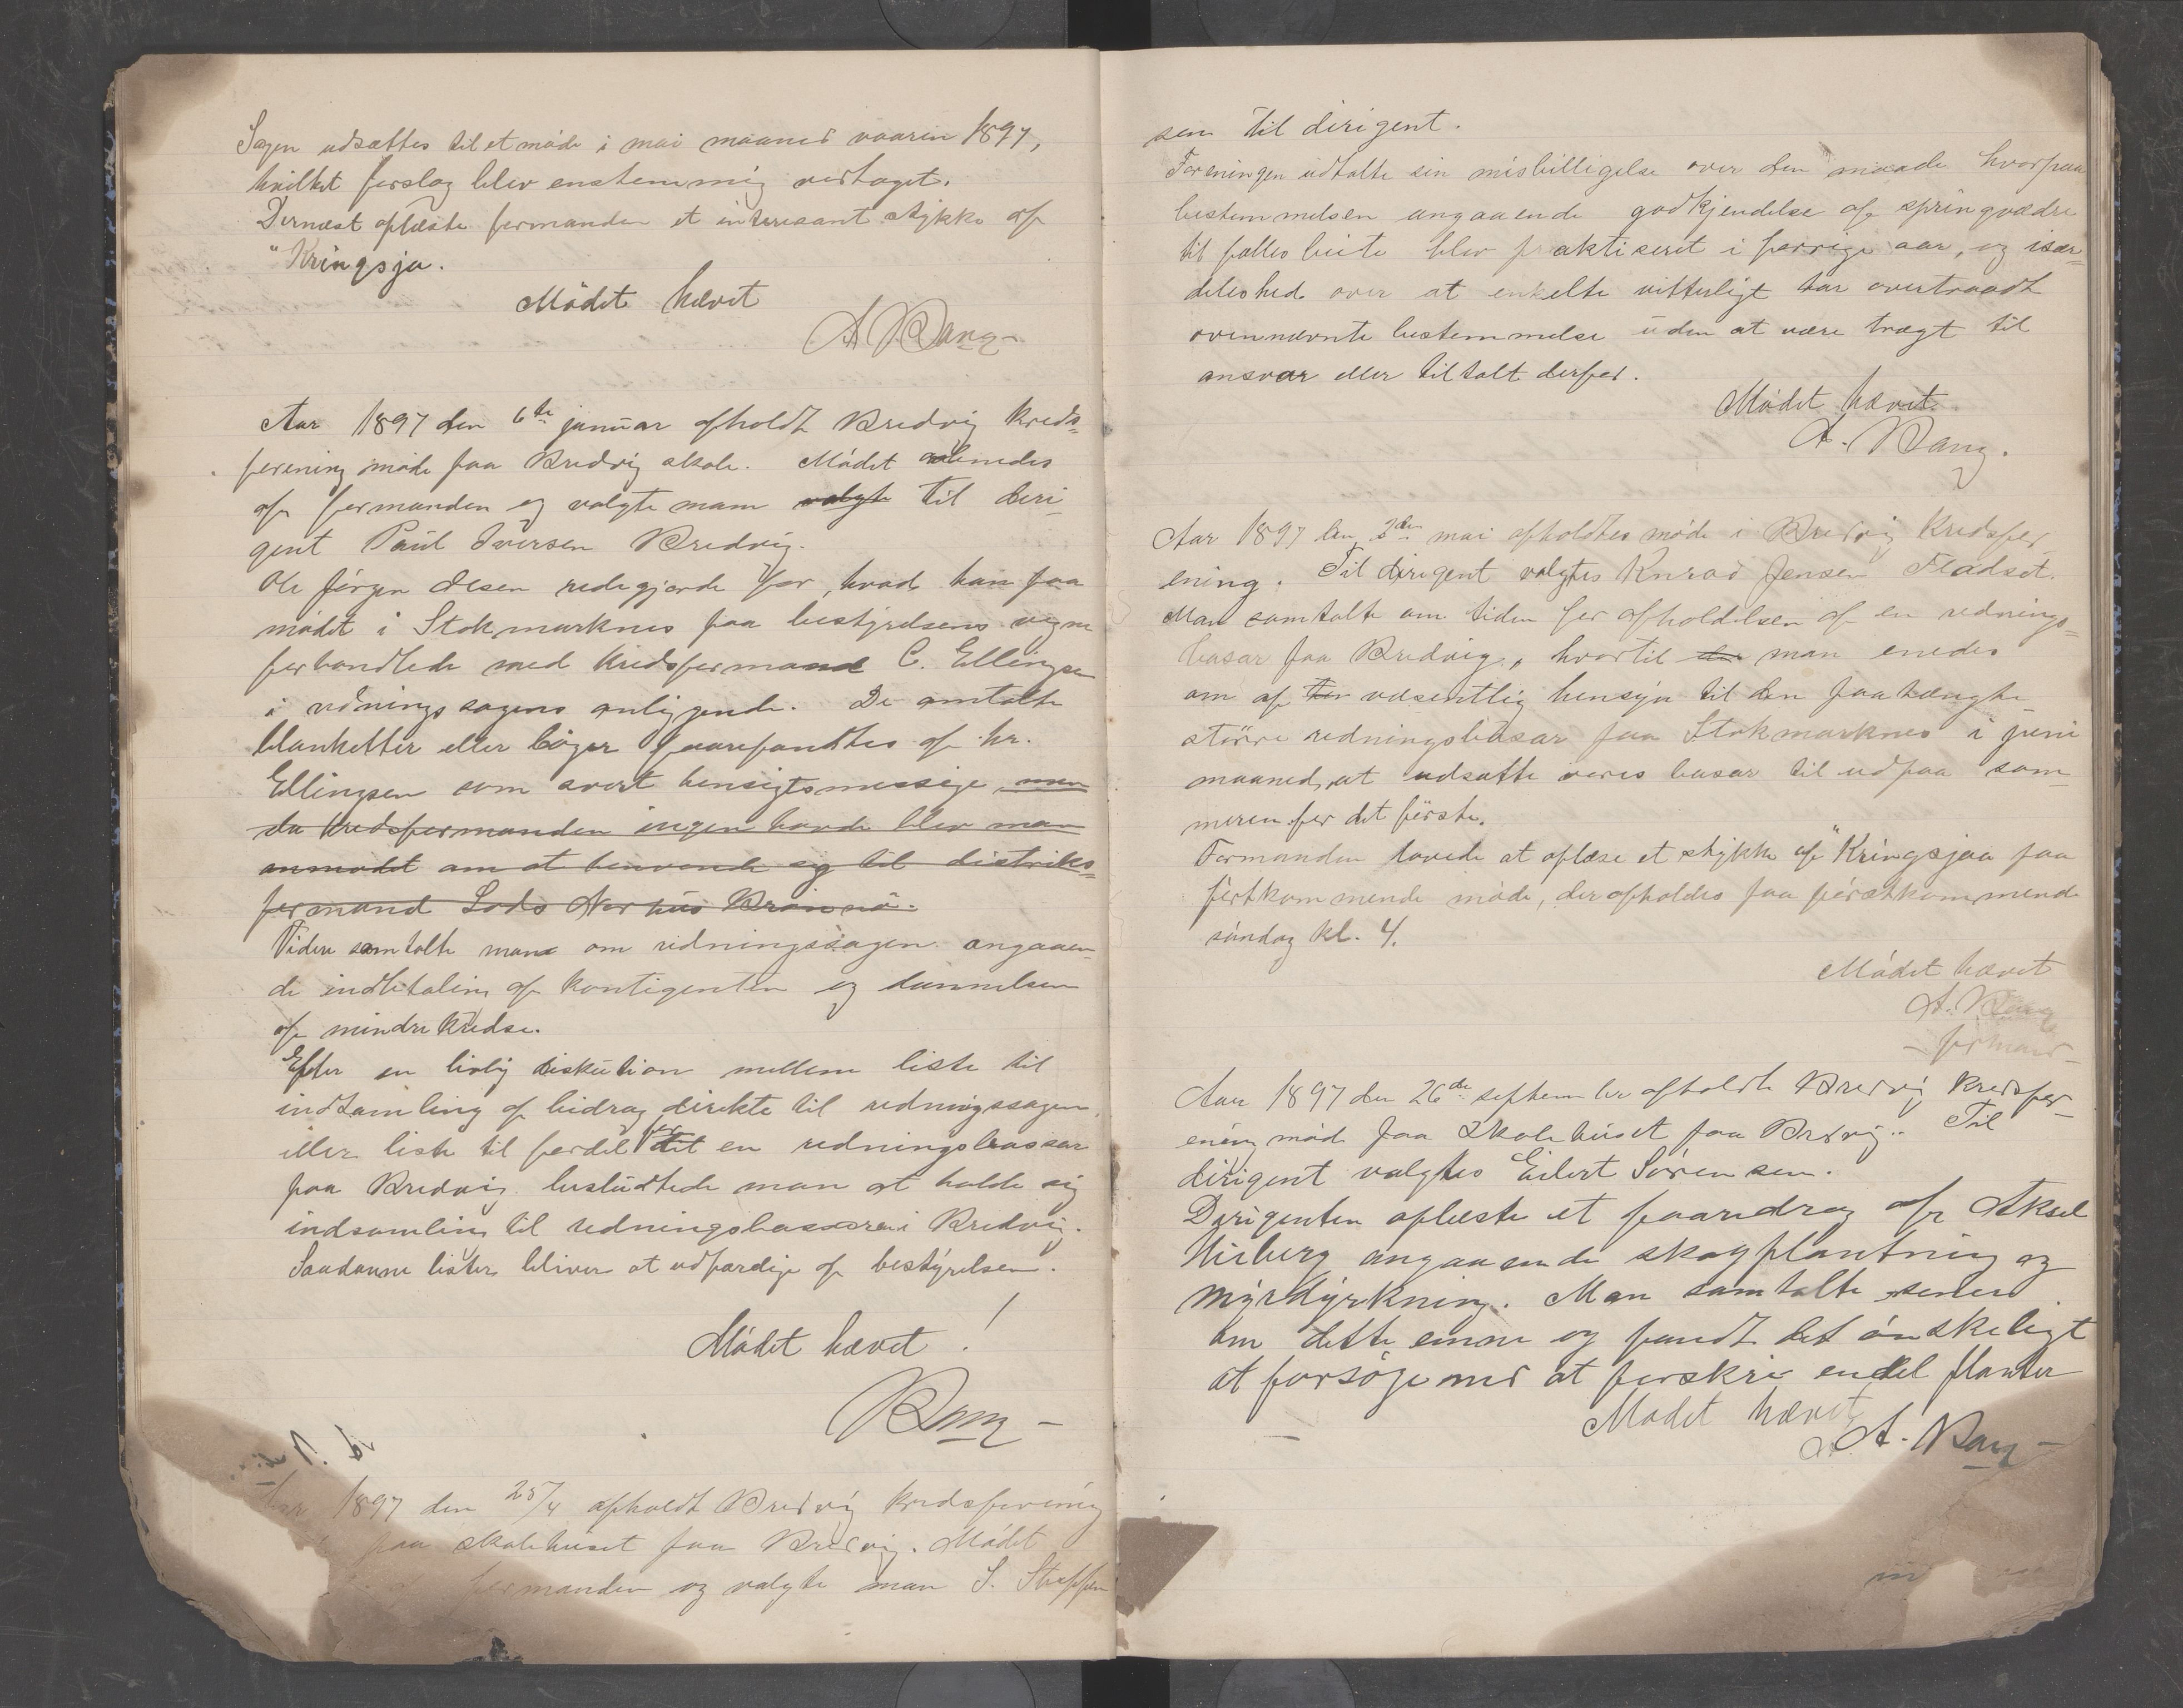 Sagen udsættes til et møde i mai maaned vaaren 1897,
hvilket forslag blev enstemmig vedtaget.
Dernæst oplæste formanden et interesant stykke af
"Kringsja.
Mödet hævet
A Bang
Aar 1897 den 6te januar afholdt Bredvig kreds-
forening møde paa Bredvig skole. Mödet aabnedes
af formanden og valgte man valgt til diri-
gent Paul Iversen Bredvig.
Ole Jörgen Olsen redegjorde for, hvad han paa
mødet i Stokmarknes paa bestyrelsens vegne
forhandlede med kredsformand C. Ellingsen
i redningssagens anliggende. De omtalte
blanketter eller böger foarefandtes af hr.
Ellingsen som svert hensigtsmessige, men
da kredsformanden ingen havde blev man
anmodet om at henvende sig til distrikts-
formand Lods Norhus Brönnö.
Videre samtalte man om redningssagen angaaen-
de indbetaling af kontigenten og dannelsen
af mindre kredse.
Efter en livlig diskution mellem liste til
indsamling af bidrag direkte til redningssagen,
eller liste til fordel for det en redningsbassar
paa Bredvig besluttede man at holde sig
indsamling til redningsbassaren i Bredvig.
Saadanne lister bliver at udfærdige af bestyrelsen.
Mödet hævet!
Bang
Aar 1897 den 25/4 afholdt Bredvig kredsforening
paa skolehuset paa Bredvig. Mödet
formanden og valgte man S. Steffen
sen til dirigent.
Foreningen udtalte sin misbilligelse over den maade hvorpaa
bestemmelsen angaaende godkjendelse af springvædre
til fælles beite blev praktiseret i forrige aar, og især-
deleshed over at enkelte vitterligt har overtraadt
ovennævnte bestemmelse uden at være trægt til
ansvar eller tiltalt derfor.
Mödet hævet.
A. Bang.
Aar 1897 den 2den mai afholdtes møde i Bredvig Kredsfor-
ening. Til dirigent valgtes Konrad Jensen Fladset.
Man samtalte om tiden for afholdelsen af en rednings-
basar paa Bredvig, hvortil der man enedes
om af væsentlig hensyn til den paatængte
större redningsbasar paa Stokmarknes i juni
maaned, at udsætte vores basar til udpaa som-
meren for det förste.
Formanden lovede at oplæse et stykke af "Kringsjaa paa
förtkommende møde, der afholdes paa förstkommende
söndag kl. 4.
Mödet hævet
A. Bang
– formand –
Aar 1897 den 26de september afholdte Bredvig Kredsfor-
ening möde paa Skolehuset paa Bredvig. Til
dirigent valgtes Eilert Sörensen.
Dirigenten oplæste et foaredrag af Aksel
Hirberg angaaende skogplantning og
myrdyrkning. Man samtalte senere
om dette emne og fandt det önskeligt
at forsöge med at forskrive endel planter
Mödet hævet
A. Bang